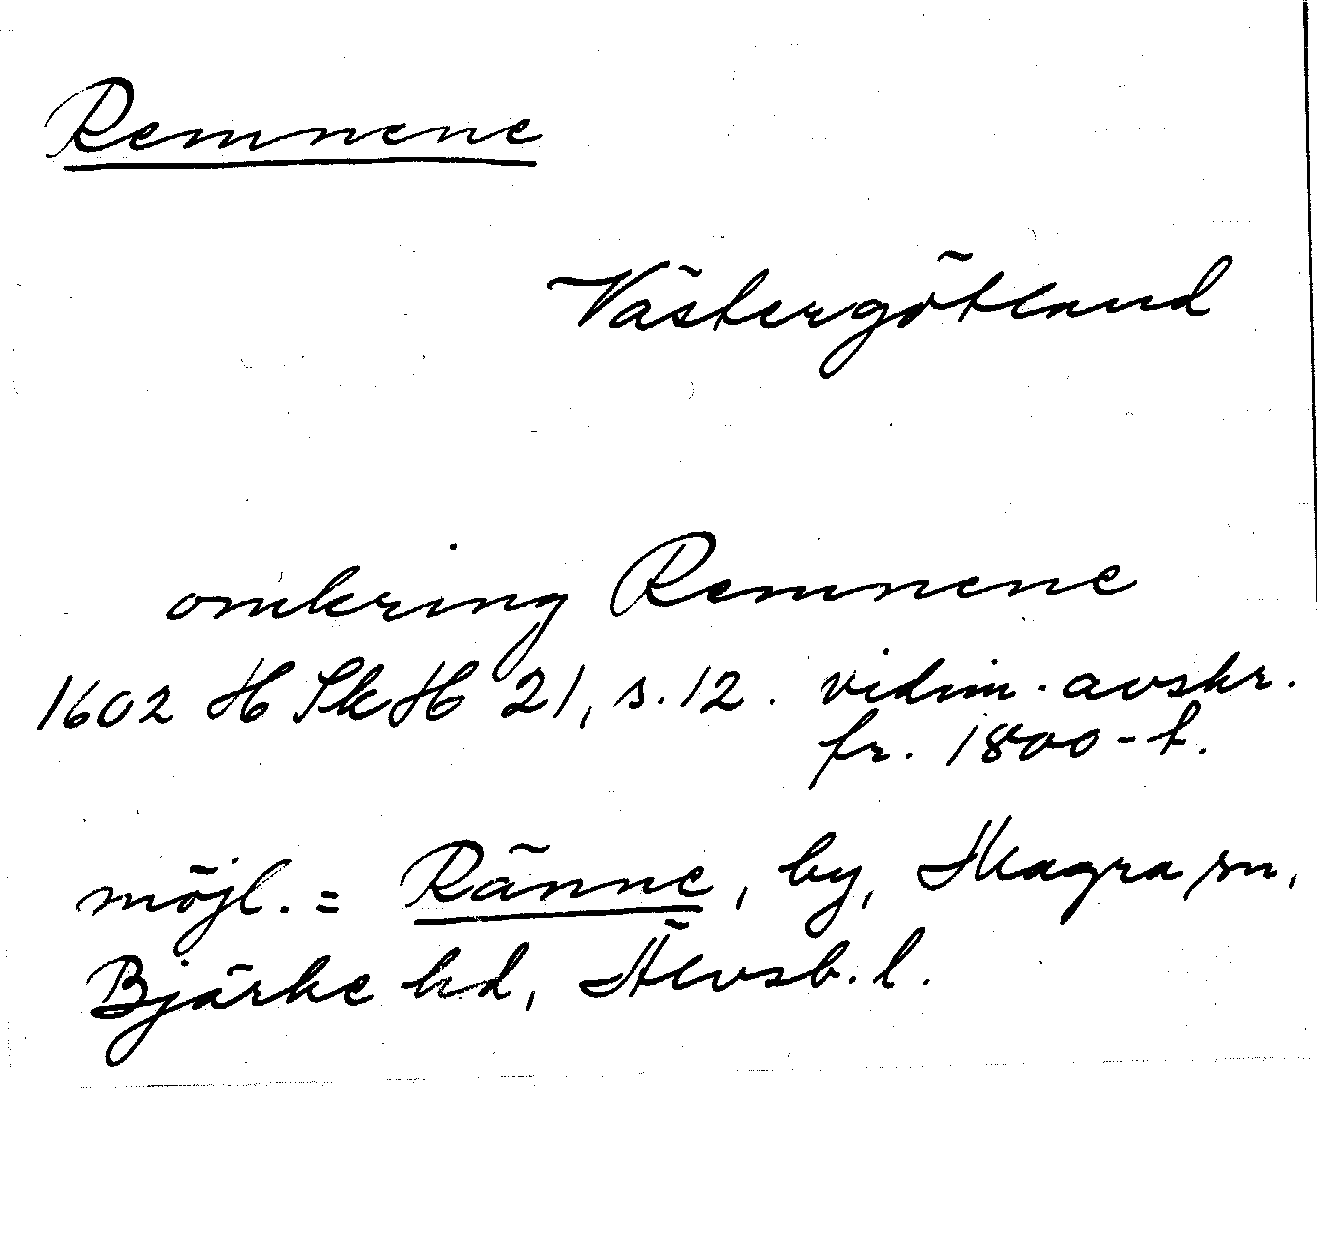 Remnene
Västergötland
omkring Remnene
1602 HSkH 21, s. 12. vidim. avskr.
fr. 1800-t.
möjl. = Ränne, by, Magra sn,
Bjärke hd, Älvsb. l.